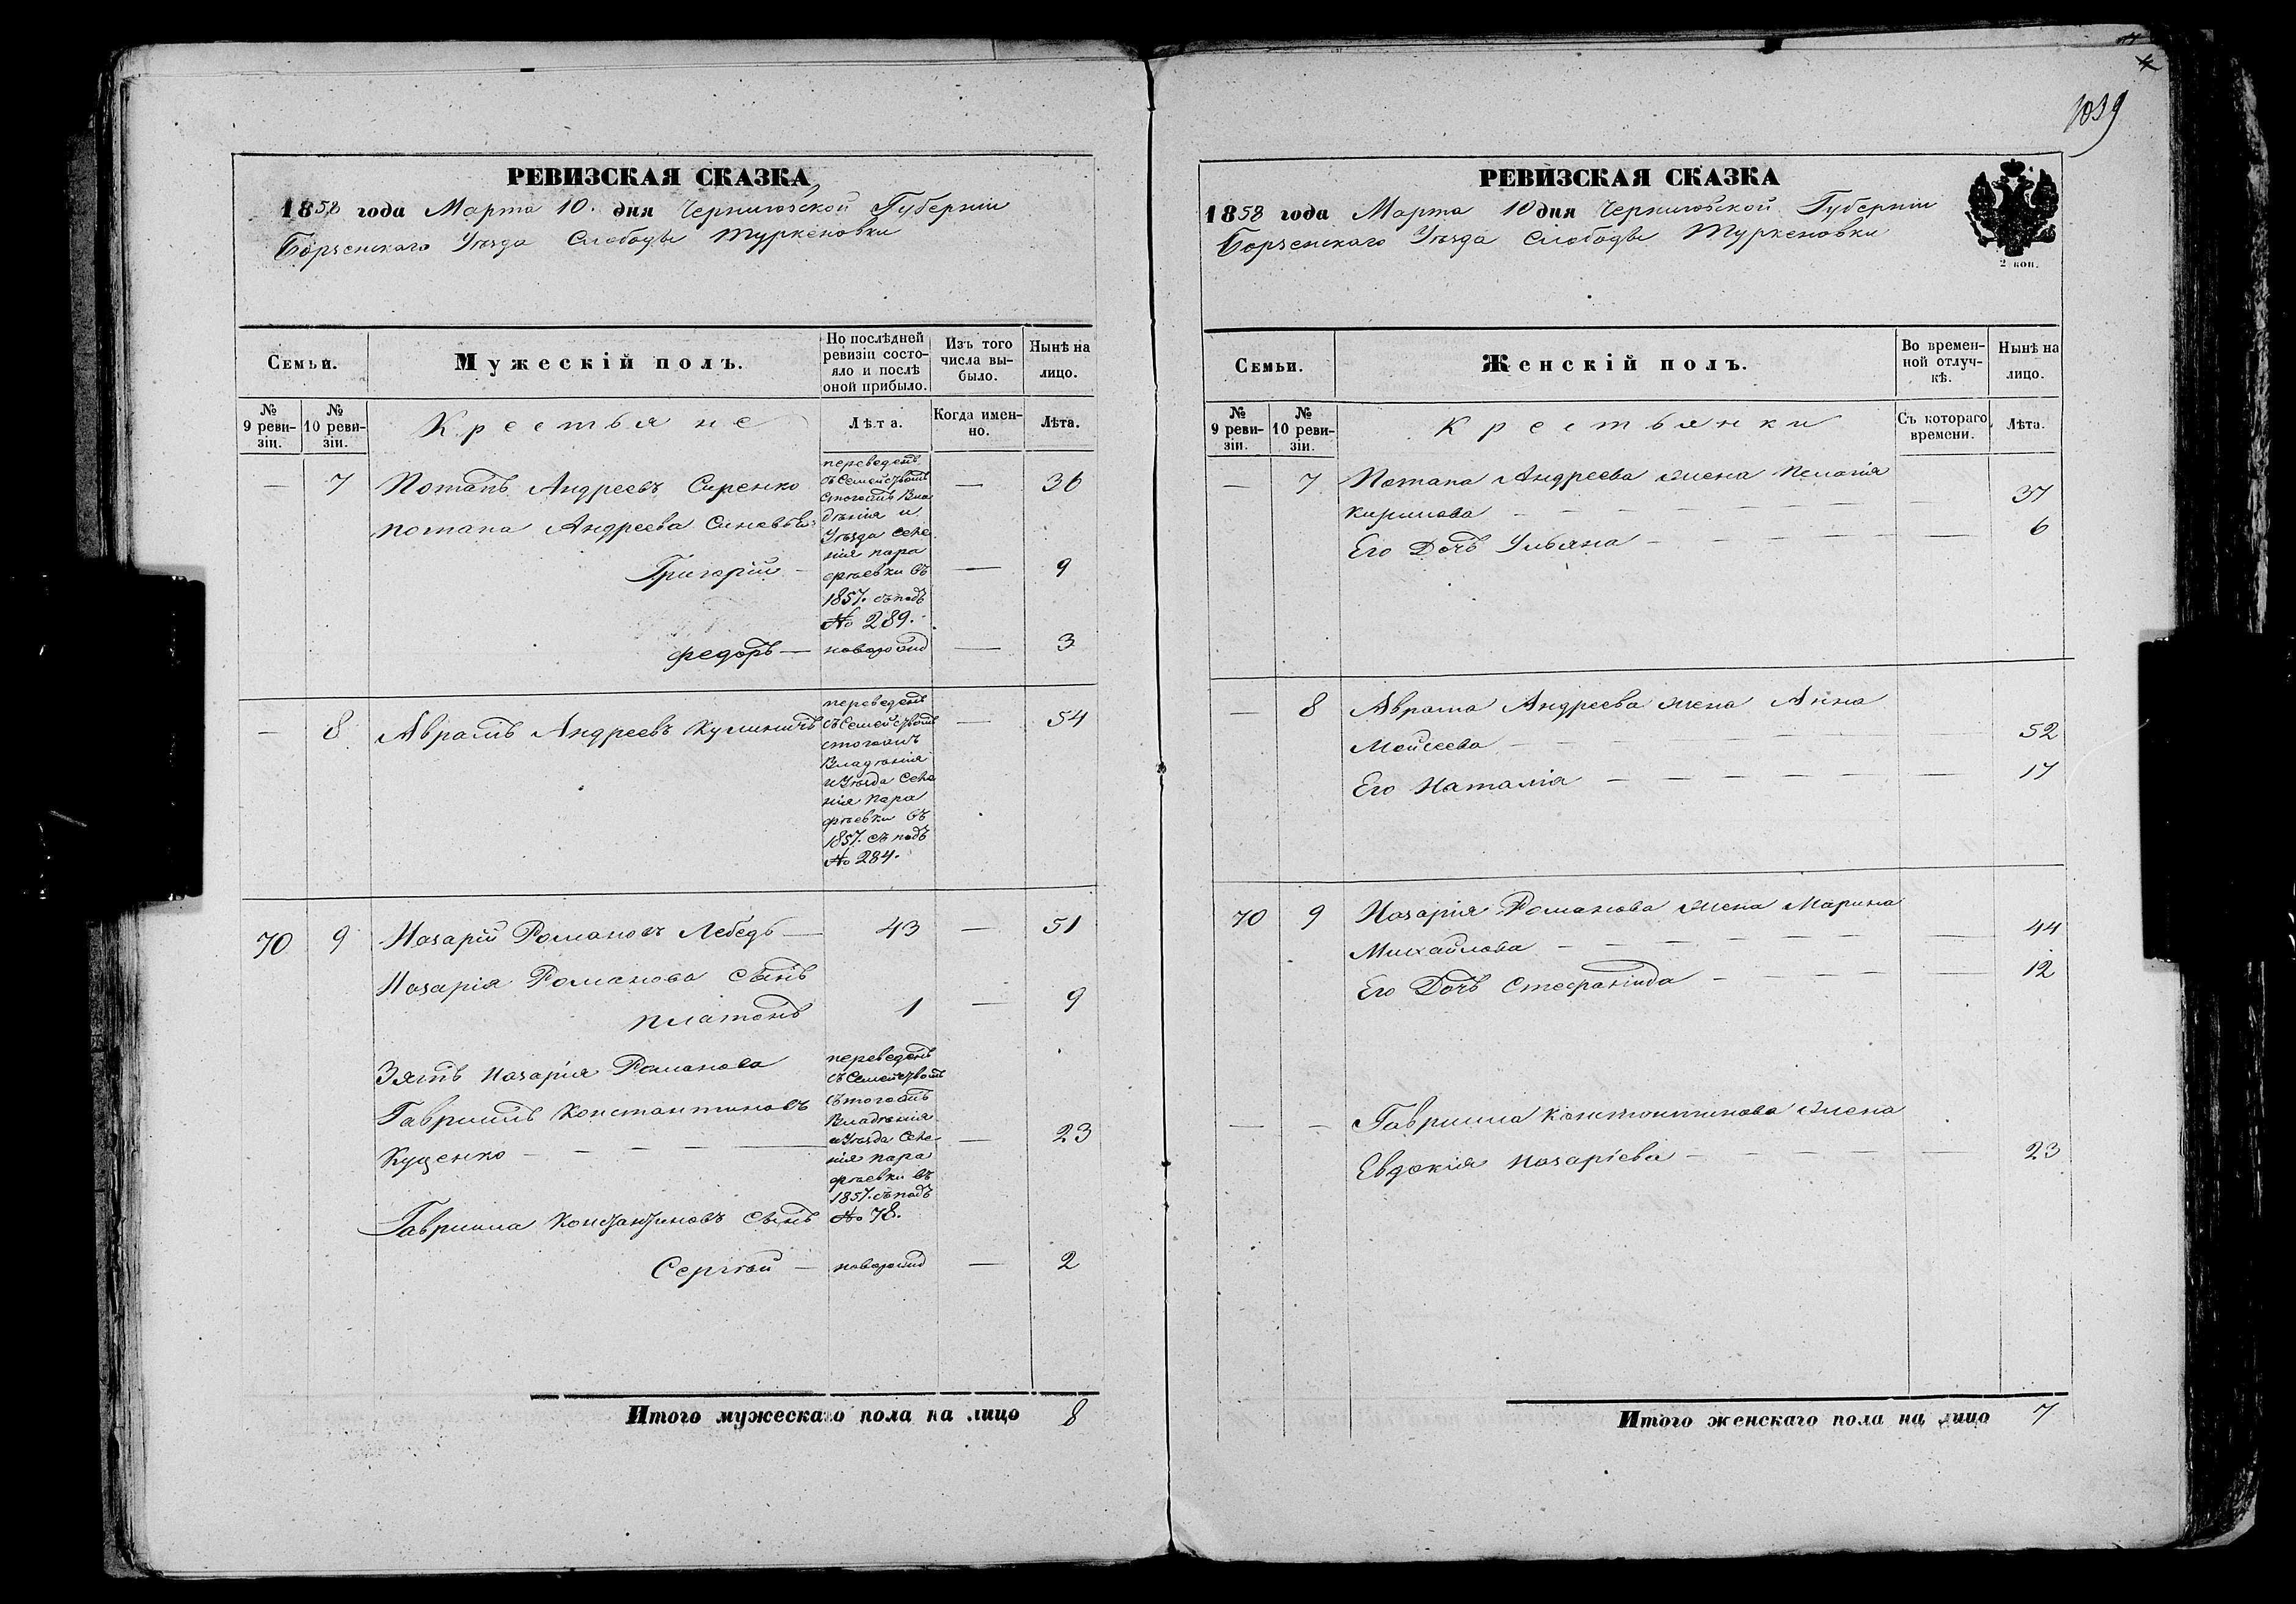 1039
РЕВИЗСКАЯ СКАЗКА
1858 года Марта 10. дня Черниговской Губернiи
Борзенскаго Уѣзда Слободы Туркеновки
Семьи.
Мужескiй полъ.
По послѣдней ревизiи состояло и послѣ оной прибыло.
Изъ того числа выбыло.
Нынѣ на лицо.
№ 9 ревизiи.
№ 10 ревизiи.
Крестьяне
Лѣта.
Когда именно.
Лѣта.
— 7 Потапъ Андреевъ Сиренко — 36
переведенъ
съ Семействомъ
стогожъ Вла
дѣнiя и
Уѣзда Селе
нiя Пара
фѣевки въ
1857. съ подъ
№ 289.
Потапа Андреева Сыновья
Григорiй — — 9
Федоръ — новорожд — 3
— 8 Аврамъ Андреевъ Кулиничъ — 54
переведенъ
съ Семействомъ
стогожъ
Владѣнiя
и Уѣзда Селе
нiя Пара
фѣевки въ
1857. съ подъ
№ 284.
70 9 Назарiй Романовъ Лебедь — 43 — 51
Назарiя Романова Сынъ
Платонъ 1 — 9
Зять Назарiя Романова
Гаврiилъ Константиновъ
Куценко — — 23
переведенъ
съ Семействомъ
стогожъ
Владѣнiя
и Уѣзда Селе
нiя Пара
фѣевки въ
1857. съ подъ
№ 78.
Гаврiила Константиновъ Сынъ
Сергѣй — новорожд — 2
Итого мужескаго пола на лицо 8
РЕВИЗСКАЯ СКАЗКА
1858 года Марта 10 дня Черниговской Губернiи
Борзенскаго Уѣзда Слободы Туркеновки
2 коп.
Семьи.
Женскiй полъ.
Во временной отлучкѣ.
Нынѣ на лицо.
№ 9 ревизiи.
№ 10 ревизiи.
Крестьянки
Съ котораго времени.
Лѣта.
— 7 Потапа Андреева жена Пелагiя
Кирилова — — 37
Его Дочь Ульяна — — 6
— 8 Аврама Андреева жена Анна
Мойсеева — — 52
Его Наталiя — — 17
70 9 Назарiя Романова жена Марина
Михайлова — — 44
Его Дочь Стефанида — — 12
— — Гаврiила Константинова жена
Евдокiя Назарiева — — 23
Итого женскаго пола на лицо 7